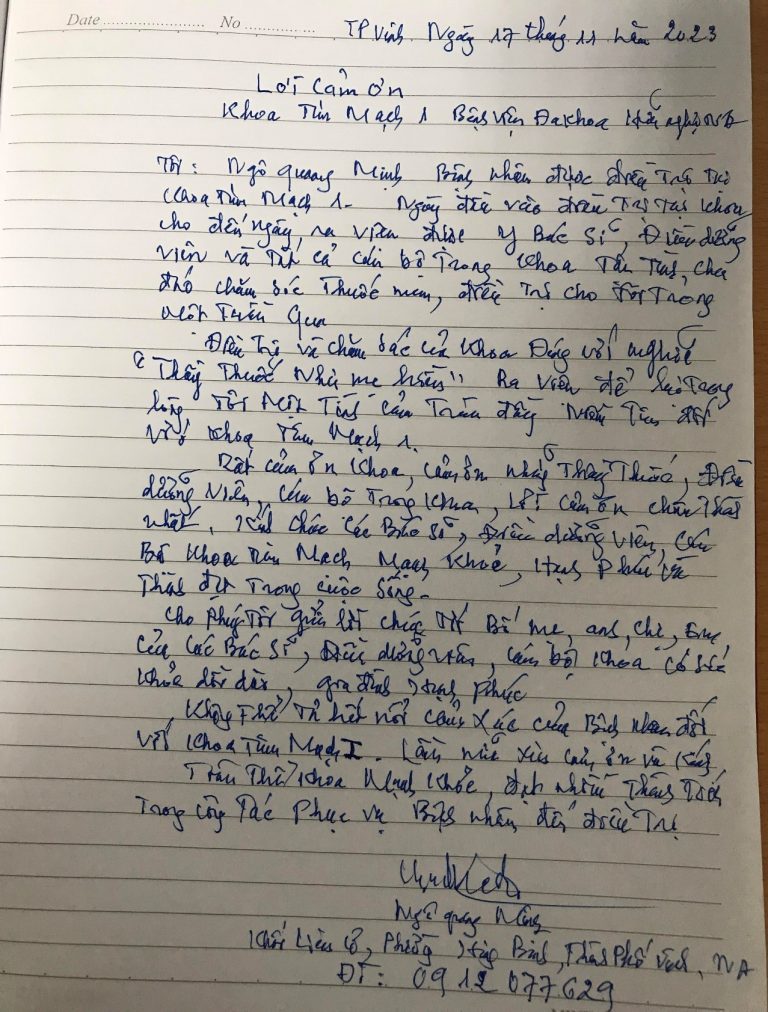 Date ........................ No ............ ...
TP Vinh. Ngày 17 tháng 11 năm 2023
Lời cảm ơn
Khoa Tim Mạch 1 Bệnh viện Đa khoa Hữu nghị
Tôi: Ngô Quang Minh Bệnh nhân được điều trị tại
Khoa Tim Mạch 1. Ngày đầu vào điều trị tại khoa
cho đến ngày ra viện được y Bác Sĩ, Điều dưỡng
viên và tất cả cán bộ trong khoa tận tình, chu
đáo chăm sóc thuốc men, điều trị cho tôi trong
một tuần qua
Điều trị và chăm sóc của khoa Đúng với nghĩa
"Thầy thuốc như mẹ hiền" Ra viện để lại trong
lòng tôi một tình cảm trân đầy niềm tin đối
với khoa Tim Mạch 1.
Rất cảm ơn khoa, cảm ơn những thầy thuốc, điều
dưỡng viên, cán bộ trong khoa, lời cảm ơn chân thành
nhất. Kính chúc các Bác Sĩ, Điều dưỡng viên, cán
Bộ khoa Tim Mạch Mạnh khoẻ, Hạnh phúc và
Thành đạt trong cuộc sống.
cho phép tôi gửi lời chúc tới Bố mẹ, anh, chị, em
của các Bác Sĩ, Điều dưỡng viên, cán bộ khoa có sức
khỏe dồi dào, gia đình hạnh phúc
Không thể tả hết nổi cảm xúc của Bệnh nhân đối
với khoa Tim Mạch I. Lần nữa xin cảm ơn và kính
khoa Mạnh khỏe, đạt nhiều thành tích
trong công tác phục vụ Bệnh nhân đến điều trị
Ngô Quang
Khối Liên Cơ, Phường Hưng Bình, Thành Phố Vinh, NA
ĐT: 0912 077629